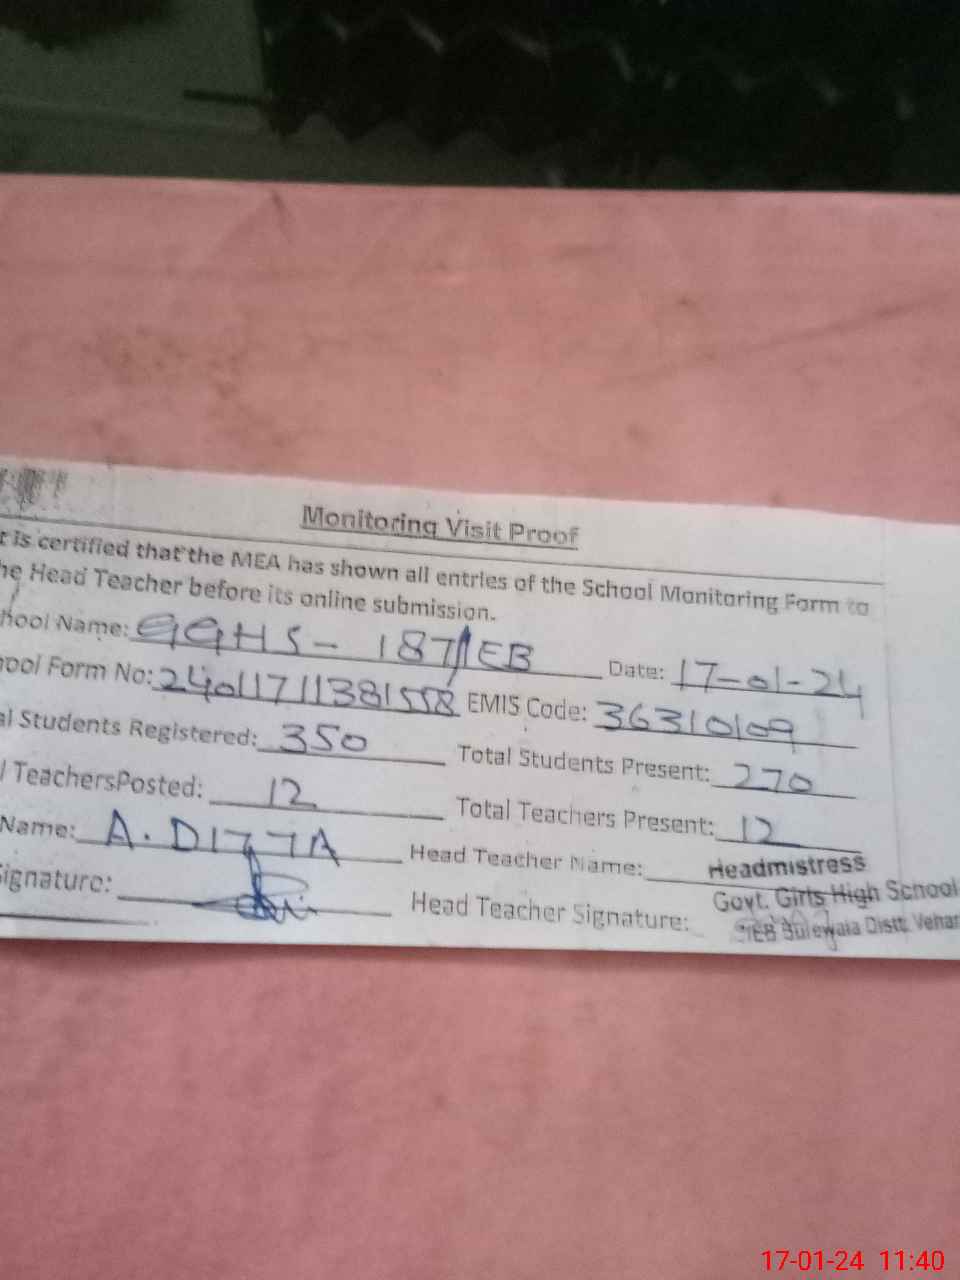 Monitoring Visit Proof
t is certified that the MEA has shown all entries of the School Monitoring Form to
he Head Teacher before its online submission.
hool Name: GGHS - 187/EB Date: 17-01-24
ool Form No: 24011711381558 EMIS Code: 36310109
al Students Registered: 350 Total Students Present: 270
l TeachersPosted: 12 Total Teachers Present: 12
Name: A. DITTA Head Teacher Name: Headmistress
Signature: Head Teacher Signature: Govt. Girls High School
Distt Vehar
17-01-24 11:40